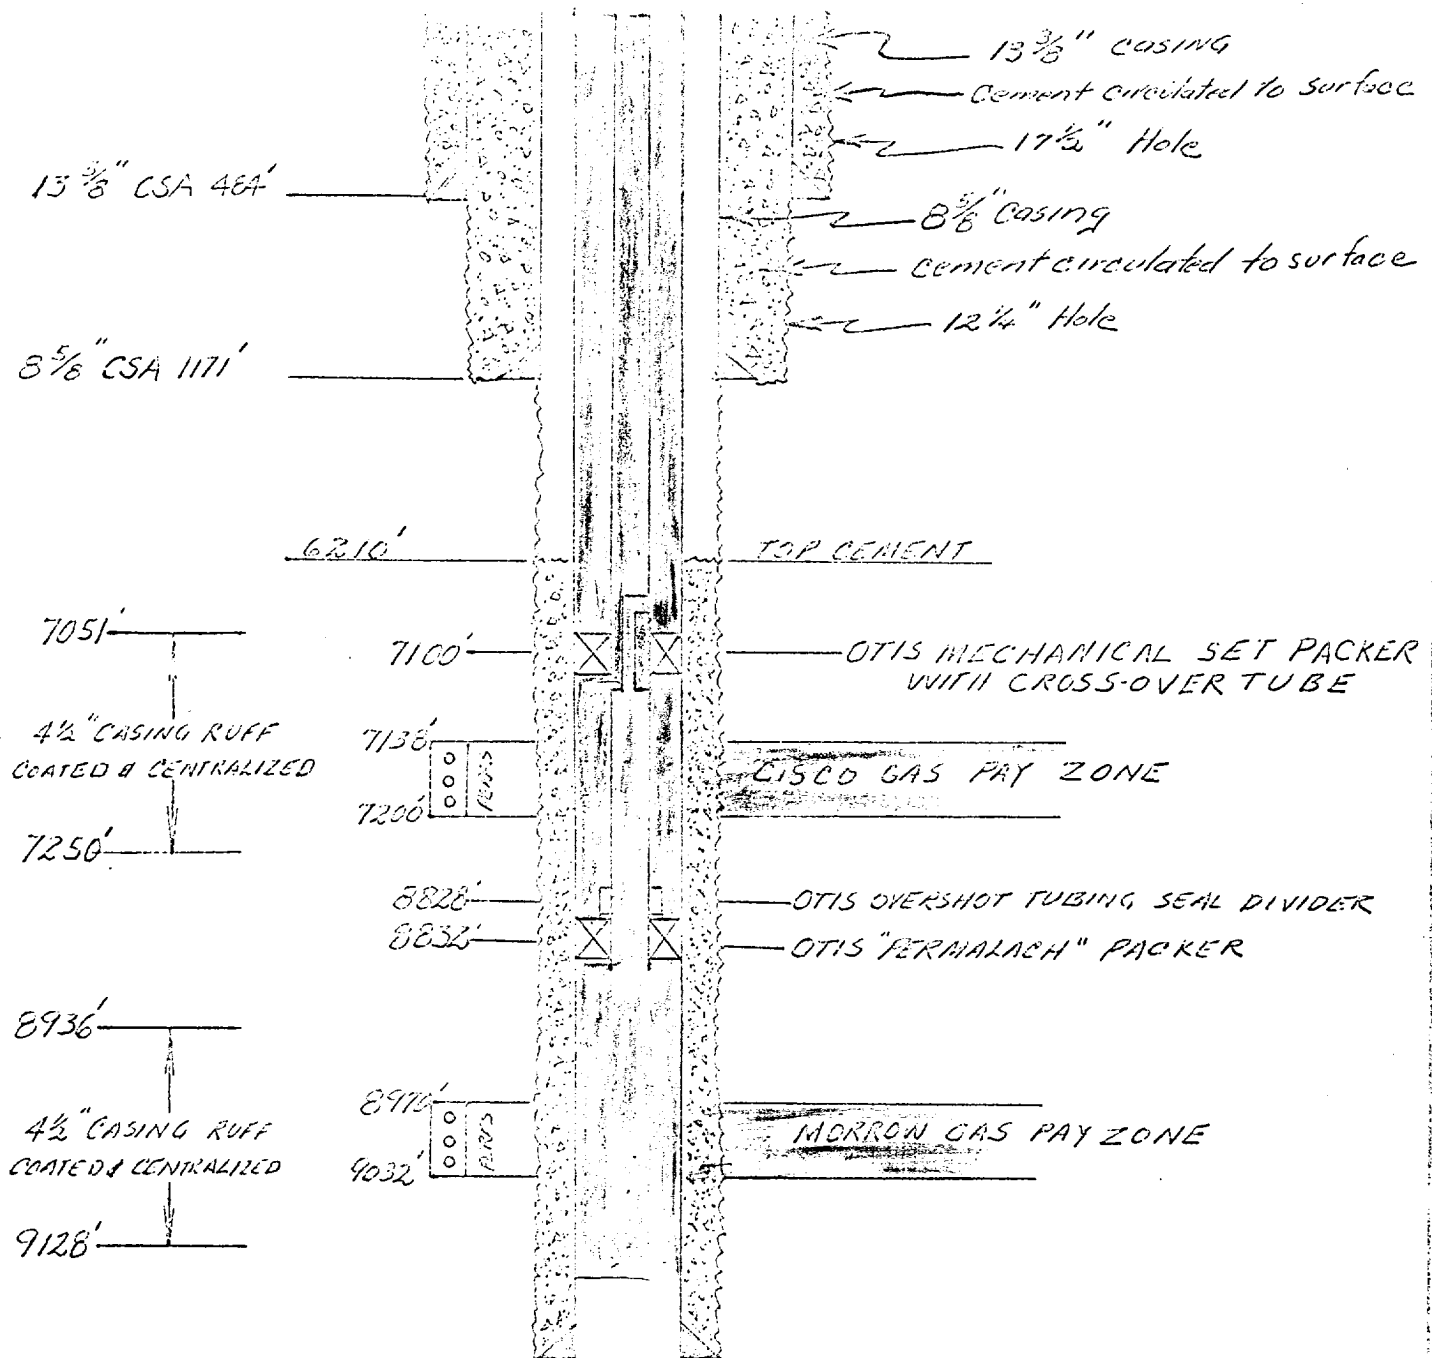 13 3/8" casing
Cement circulated to surface
17 1/2" Hole
13 3/8" CSA 464'
8 5/8" Casing
Cement circulated to surface
12 1/4" Hole
8 5/8" CSA 1171'
6210'
TOP CEMENT
7051'
7100'
OTIS MECHANICAL SET PACKER
WITH CROSS-OVER TUBE
4 1/2" CASING RUFF
COATED & CENTRALIZED
7138'
PERFS
CISCO GAS PAY ZONE
7200'
7250'
8828'
OTIS OVERSHOT TUBING SEAL DIVIDER
8832'
OTIS "PERMALACH" PACKER
8936'
PERFS
MORROW GAS PAY ZONE
4 1/2" CASING RUFF
COATED & CENTRALIZED
9032'
9128'